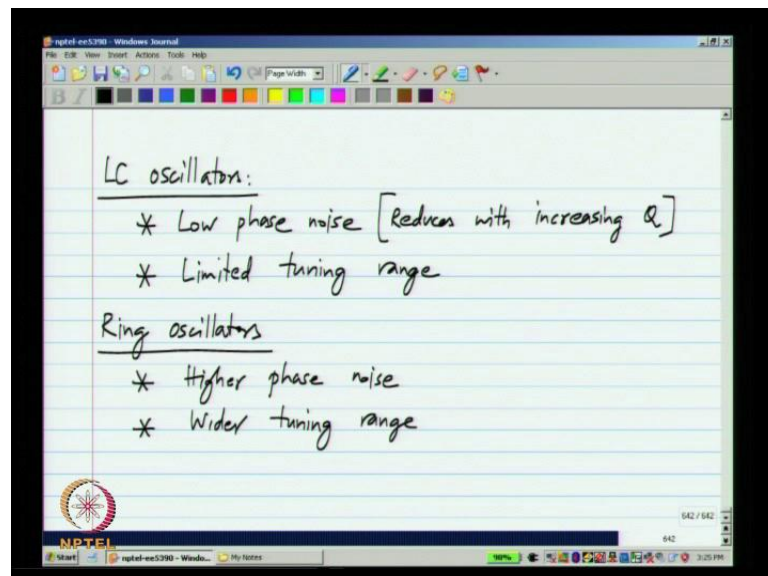 nptel-ee5390 - Windows Journal
File Edit View Insert Actions Tools Help
Page Width
B I
LC oscillators:
* Low phase noise [Reduces with increasing Q]
* Limited tuning range
Ring oscillators
* Higher phase noise
* Wider tuning range
642 / 642
642
NPTEL
Start nptel-ee5390 - Windo... My Notes 98% 3:25 PM